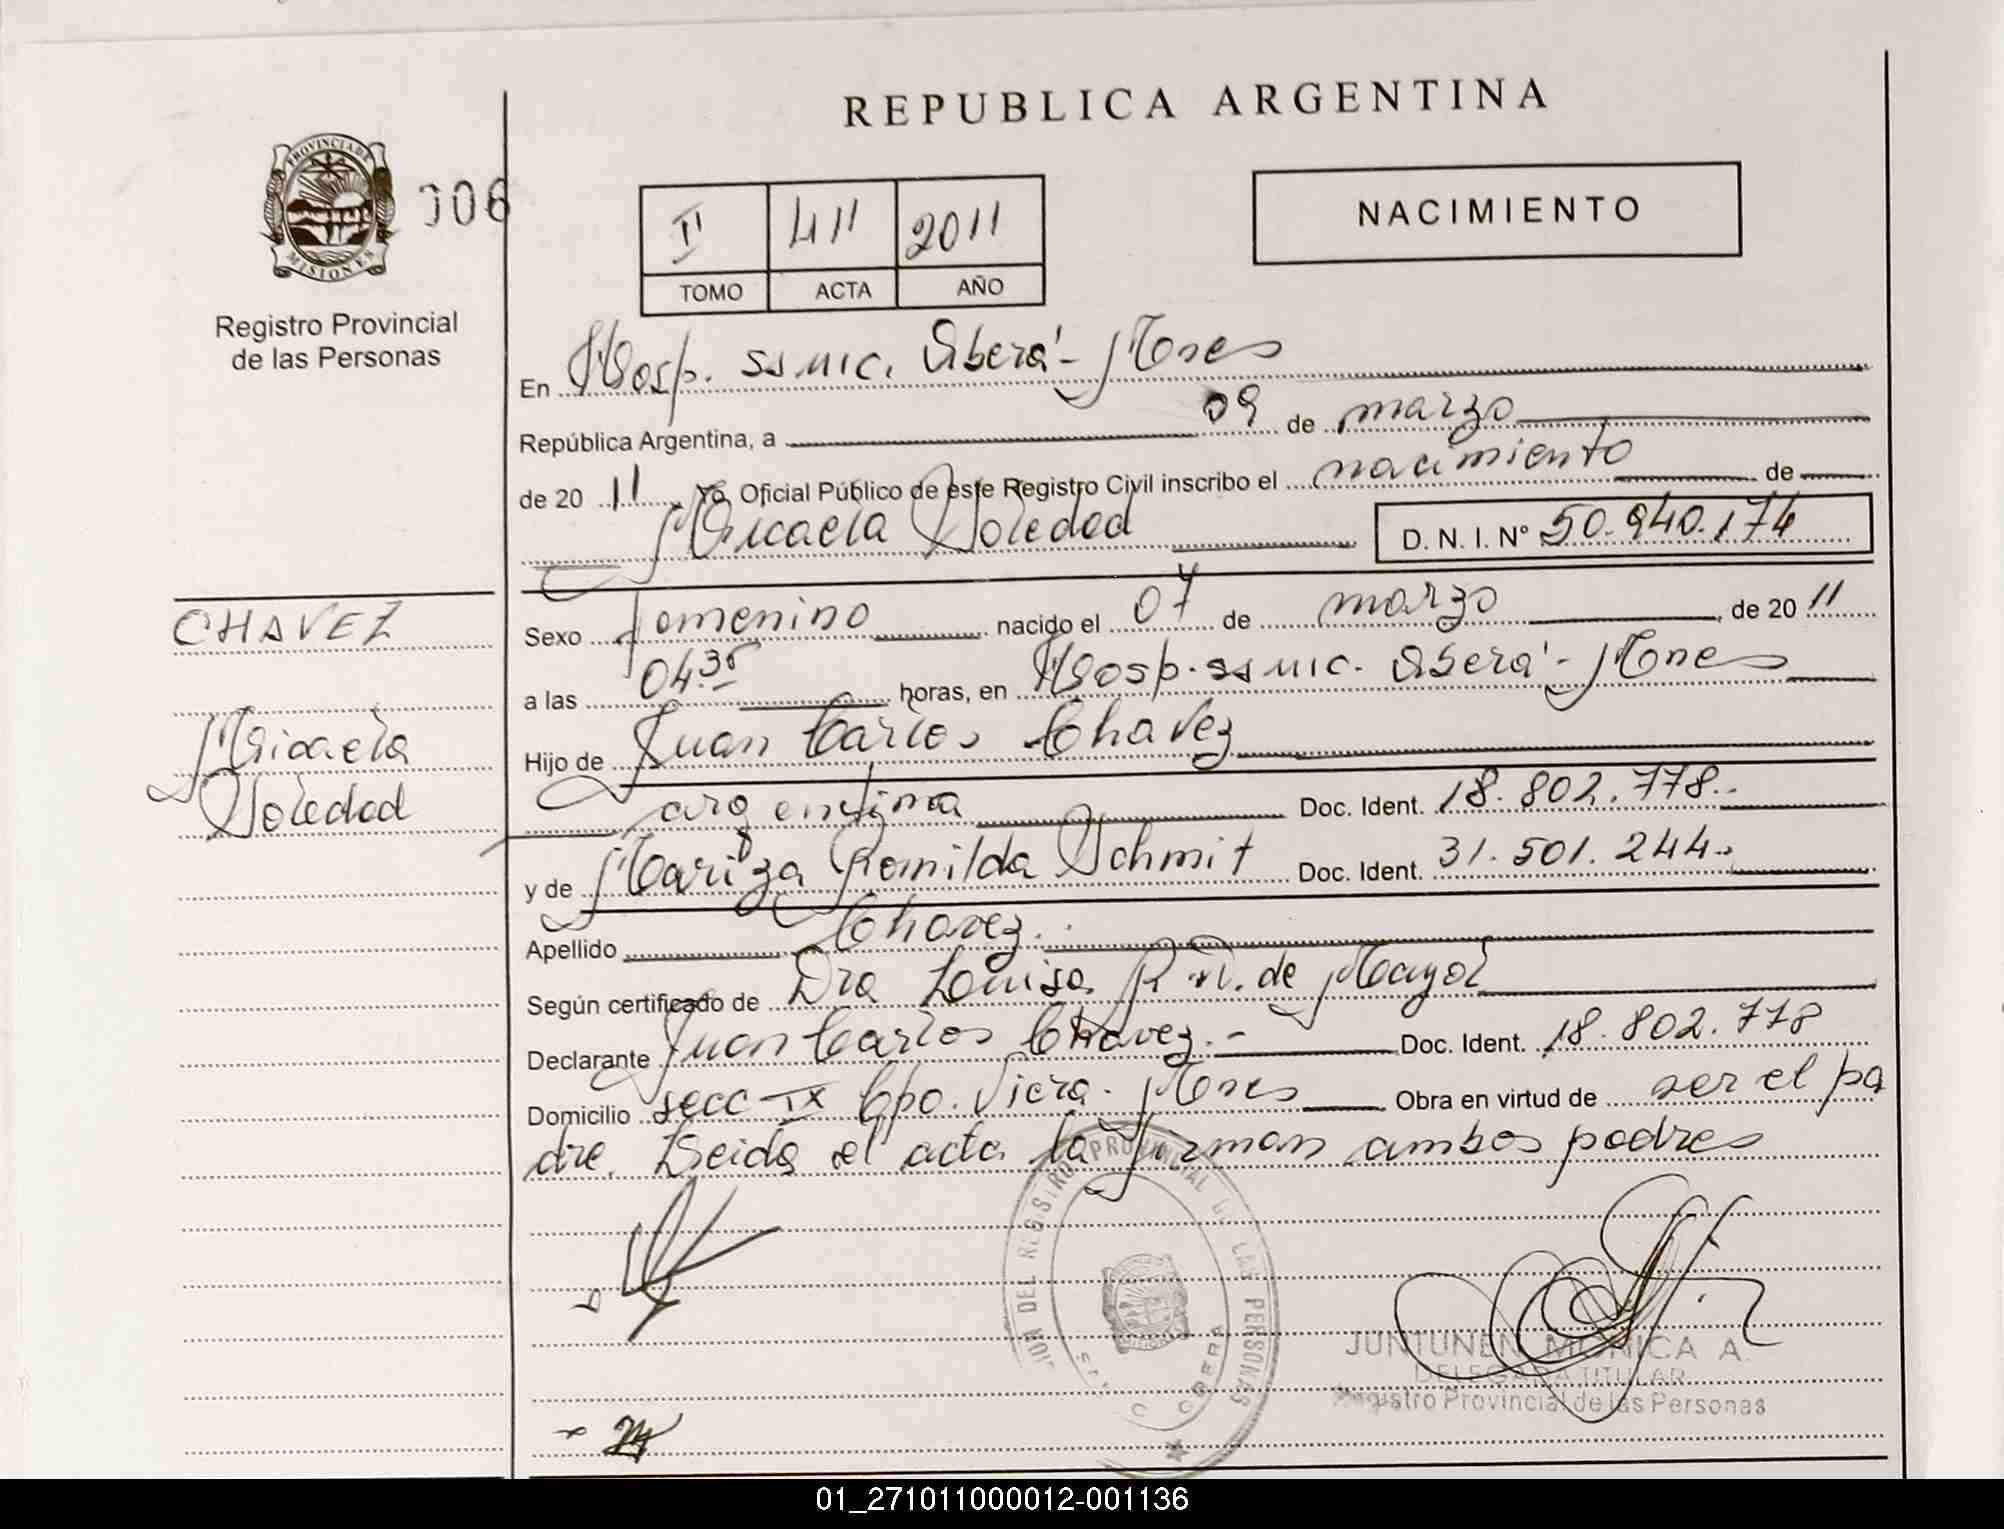 REPUBLICA ARGENTINA
PROVINCIA DE
MISIONES
006
Registro Provincial
de las Personas
II 411 2011
TOMO ACTA AÑO
NACIMIENTO
En Hosp. SS MIC. Oberá - Mnes
República Argentina, a 09 de marzo
de 20 11 Yo Oficial Público de este Registro Civil inscribo el nacimiento de
Micaela Soledad D. N. I. N° 50.940.174
CHAVEZ
Micaela
Soledad
Sexo femenino nacido el 07 de marzo de 20 11
a las 04.35 horas, en Hosp. SS MIC. Oberá - Mnes
Hijo de Juan Carlos Chavez
argentina Doc. Ident. 18.802.778.-
y de Mariza Romilda Schmit Doc. Ident. 31.501.244.-
Apellido Chavez.
Según certificado de Dra Louisa R de Mayol
Declarante Juan Carlos Chavez.- Doc. Ident. 18.802.778
Domicilio secc IX Cpo. Viera - Mnes Obra en virtud de ser el pa
dre. Leida el acta la firman ambos padres
DEL REGISTRO PROVINCIAL DE LAS PERSONAS
OBERA
JUNTUNEN MONICA A.
DELEGADA TITULAR
Registro Provincial de las Personas
01_271011000012-001136